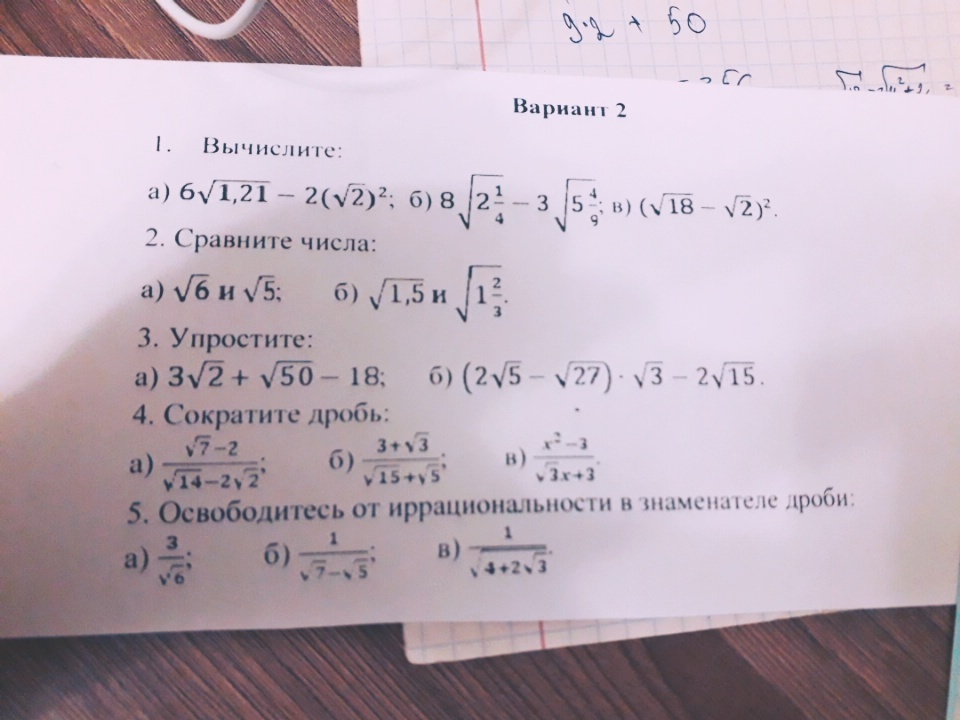 9·2 + 50
Вариант 2
1. Вычислите:
а) 6√1,21 − 2(√2)²; б) 8√2 1/4 − 3√5 4/9; в) (√18 − √2)².
2. Сравните числа:
а) √6 и √5; б) √1,5 и √1 2/3.
3. Упростите:
а) 3√2 + √50 − 18; б) (2√5 − √27) · √3 − 2√15.
4. Сократите дробь:
а) (√7−2)/(√14−2√2); б) (3+√3)/(√15+√5); в) (x²−3)/(√3x+3).
5. Освободитесь от иррациональности в знаменателе дроби:
а) 3/√6; б) 1/(√7−√5); в) 1/√(4+2√3).